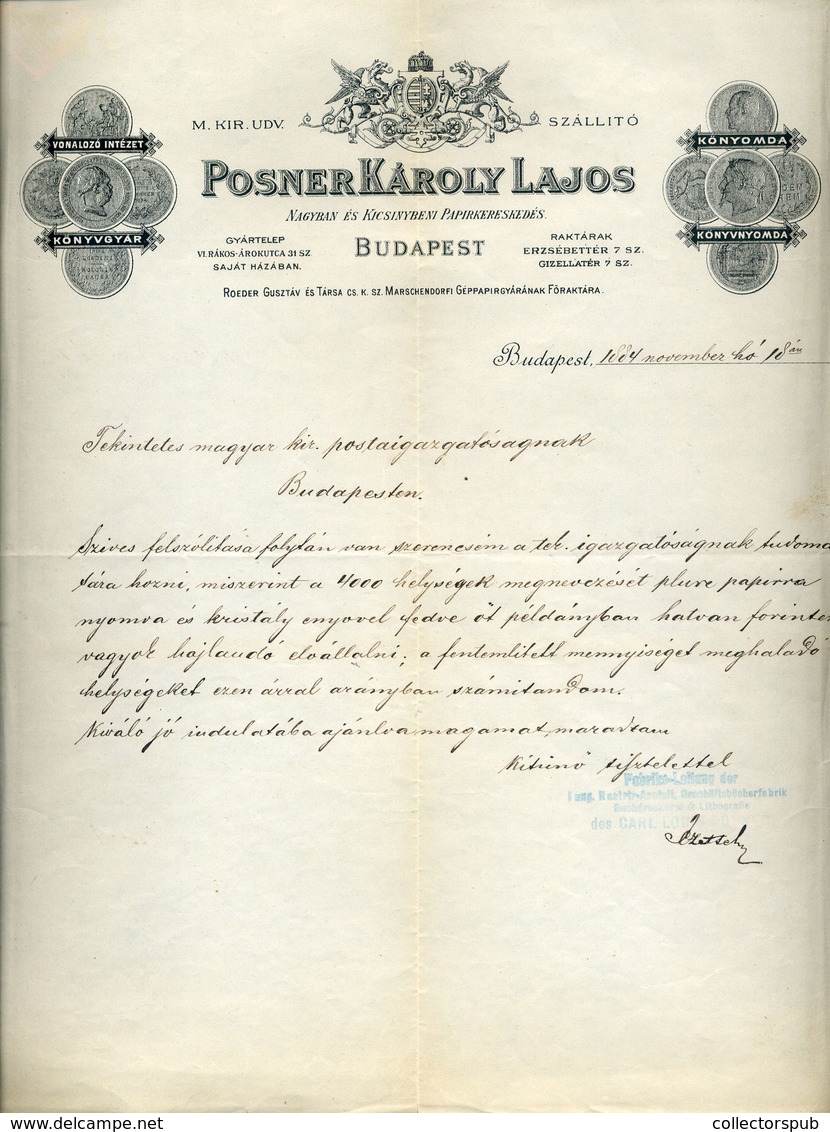 M. KIR. UDV. SZÁLLITÓ
VONALOZÓ INTÉZET
KÖNYVGYÁR
KŐNYOMDA
KÖNYVNYOMDA
POSNER KÁROLY LAJOS
NAGYBAN ÉS KICSINYBENI PAPIRKERESKEDÉS.
GYÁRTELEP
VI. RÁKOS-ÁROKUTCA 31 SZ
SAJÁT HÁZÁBAN.
BUDAPEST
RAKTÁRAK
ERZSÉBETTÉR 7 SZ.
GIZELLATÉR 7 SZ.
ROEDER GUSZTÁV ÉS TÁRSA CS. K. SZ. MARSCHENDORFI GÉPPAPIRGYÁRÁNAK FŐRAKTÁRA.
Budapest, 1884 november hó 18án
Tekintetes magyar kir. postaigazgatóságnak
Budapesten.
Szives felszólitása folytán van szerencsém a tek. igazgatóságnak tudomá
sára hozni, miszerint a 4000 helységek megnevezését plure papirra
nyomva és kristály enyvvel fedve öt példányban hatvan forintért
vagyok hajlandó előállalni; a fentemlitett mennyiséget meghaladó
helységeket ezen árral arányban számitandom.
Kiváló jó indulatába ajánlva magamat maradtam
kitünő tisztelettel
Fabriks-Leitung der
Rastrir-Anstalt, Geschäftsbücherfabrik
Buchdruckerei & Lithografie
des CARL
collectorspub